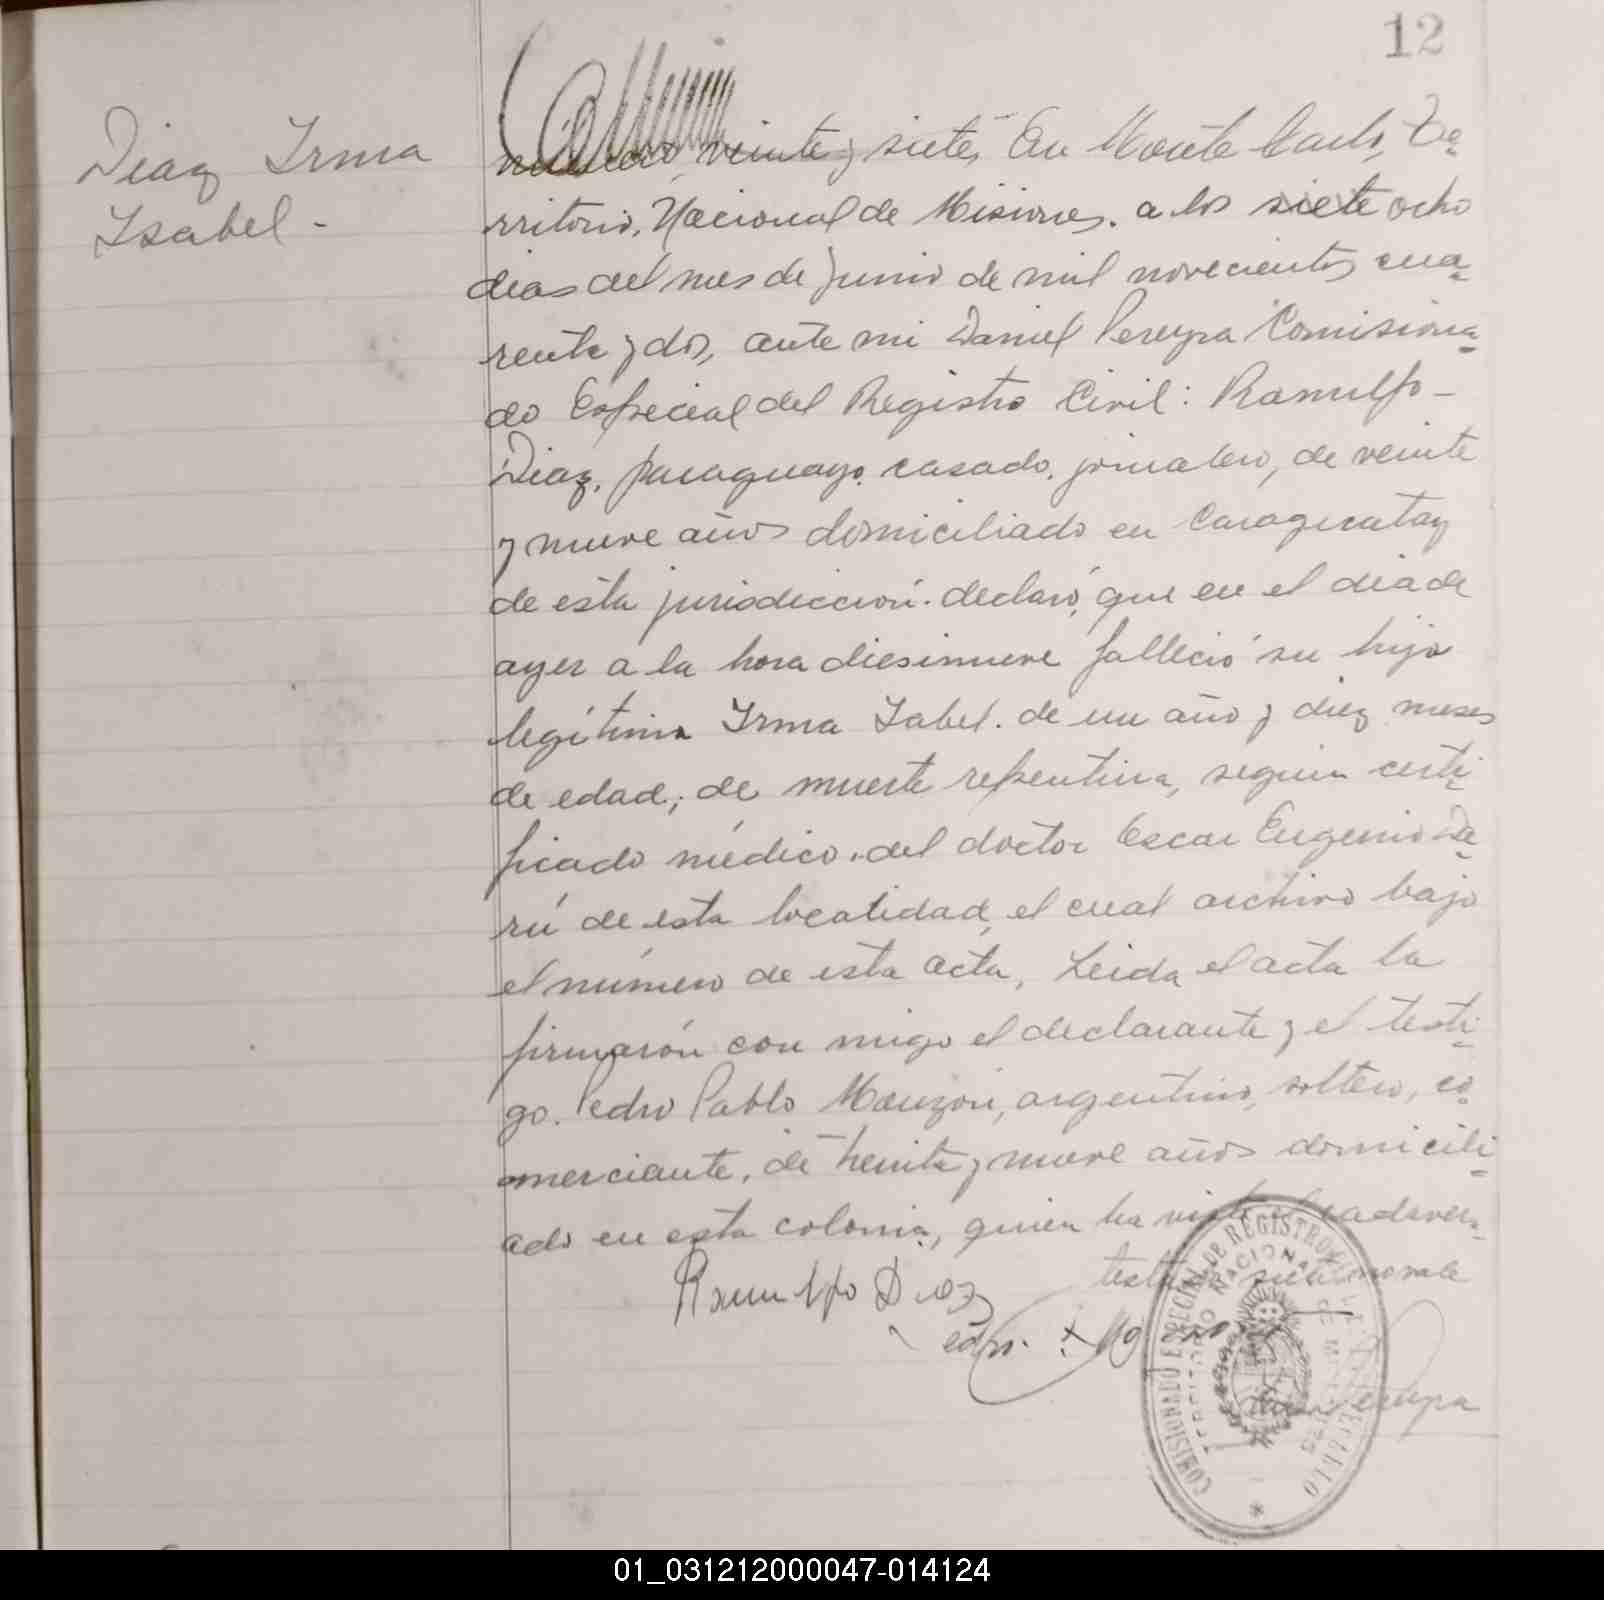 12
Diaz Irma
Isabel -
numero veinte y siete, En Monte Carlo, Te-
rritorio, Nacional de Misiones. a los siete ocho
dias del mes de junio de mil novecientos cua-
renta y dos, ante mi Daniel Pereyra Comisiona-
do Especial del Registro Civil: Ranulfo -
Diaz, paraguayo, casado, jornalero, de veinte
y nueve años domiciliado en Caraguatay
de esta jurisdiccion. declaró, que en el dia de
ayer a la hora diesinueve falleció su hija
legítima Irma Isabel. de un año y diez meses
de edad; de muerte repentina, segun certi-
ficado médico. del doctor Oscar Eugenio Da-
rú de esta localidad, el cual archivo bajo
el número de esta acta, Leida el acta la
firmarón con migo el declarante y el testi-
go. Pedro Pablo Monzón, argentino, soltero, co-
merciante, de treinta y nueve años domicili-
ado en esta colonia, quien ha visto el cadaver.
testado siete no vale
Ranulfo Diaz
Pereyra
COMISIONADO ESPECIAL DE REGISTRO CIVIL
TERRITORIO NACIONAL DE MISIONES
01_031212000047-014124